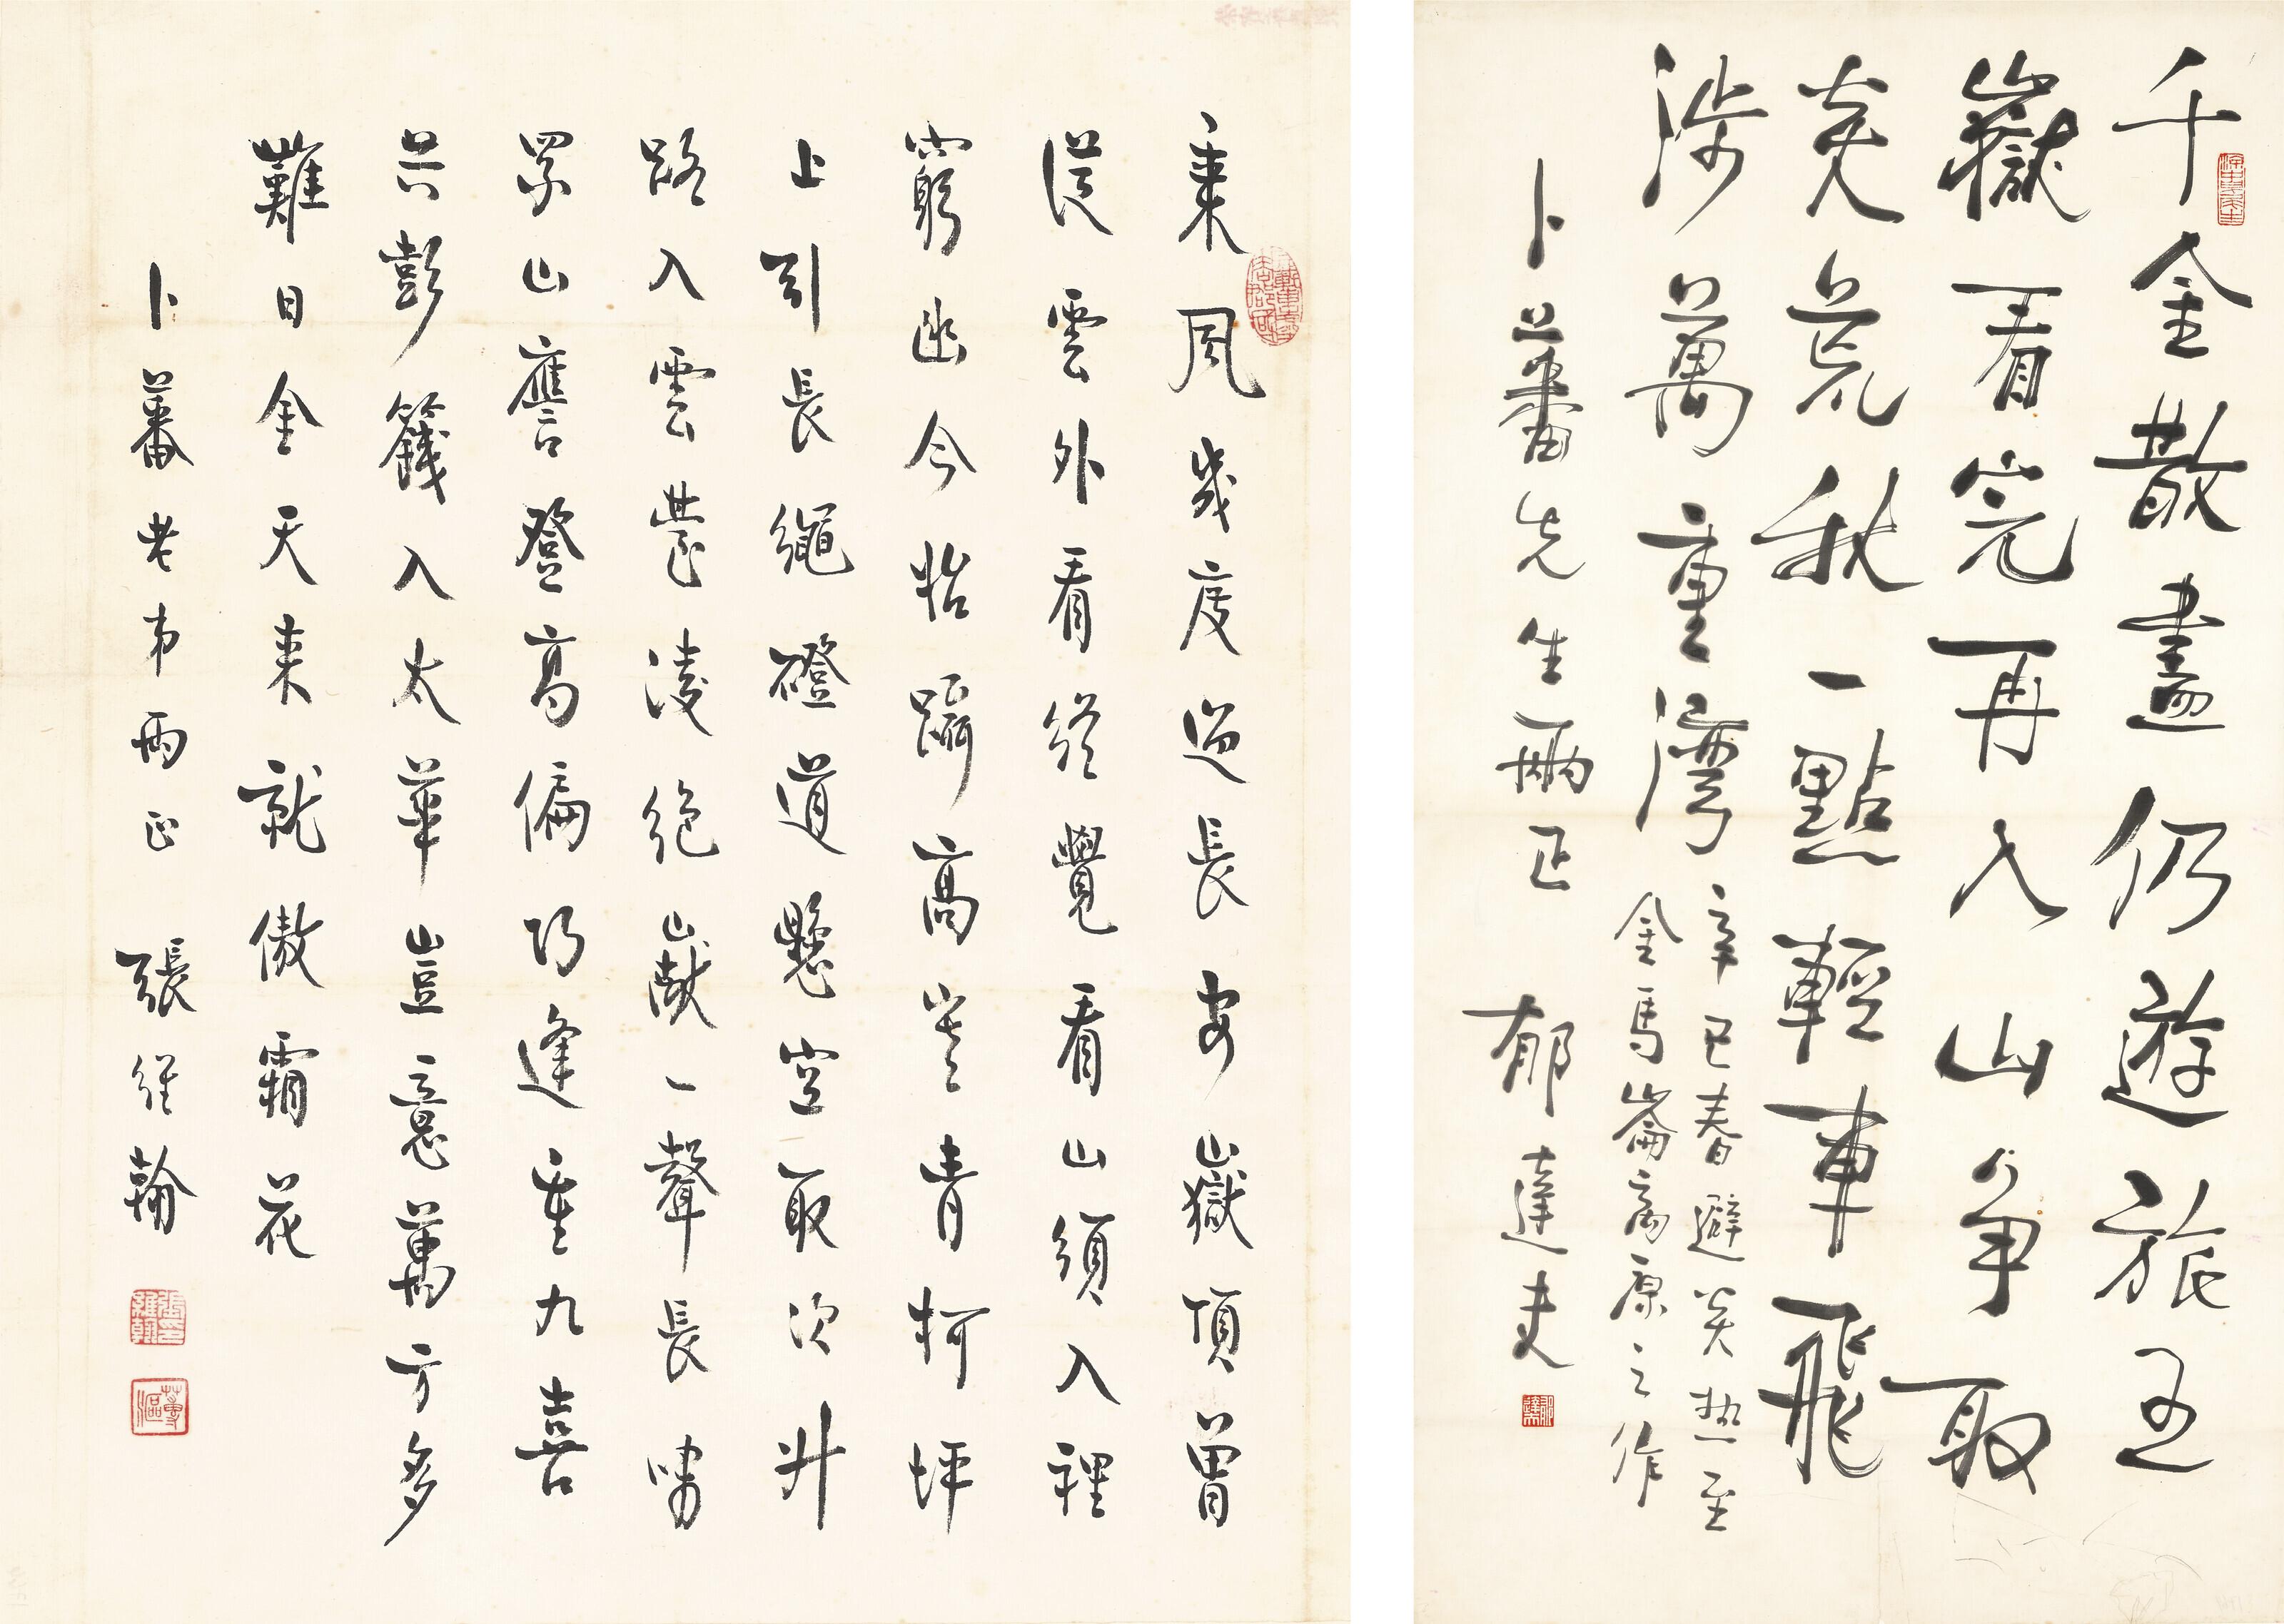 千金散盡仍遊旅五
嶽看完再入山爭取
炎荒秋一點輕車飛
涉萬重灣
辛巳春避炎熱至
金馬崙高原之作
卜蕃先生兩正 郁達夫
乘風幾度過長安嶽頂曾
從雲外看終覺看山須入裡
窮幽今始躡高岑青柯坪
上引長繩磴道懸空取次升
路入雲叢凌絕巘一聲長嘯
眾山譍登高偏巧逢重九喜
共彭籛入太華豈意萬方多
難日金天來就傲霜花
卜蕃老弟兩正 張維翰
張維翰印
蓴漚